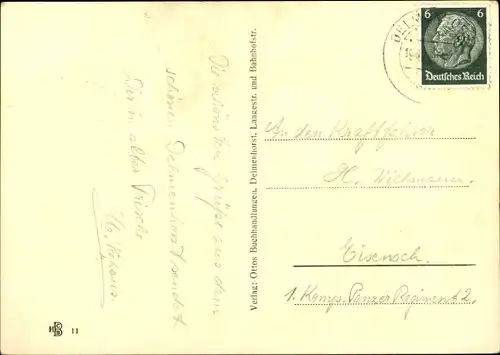 Die schönsten Grüße aus dem
schönen Delmenhorst sendet
Dir in alter Frische
H. Klaus
Verlag: Ottos Buchhandlungen, Delmenhorst, Langestr. und Bahnhofstr.
11
6 6
Deutsches Reich
DEL
An den Kraftfahrer
H. Wichmann
Eisenach.
1. Komp. Panzer Regiment 2,